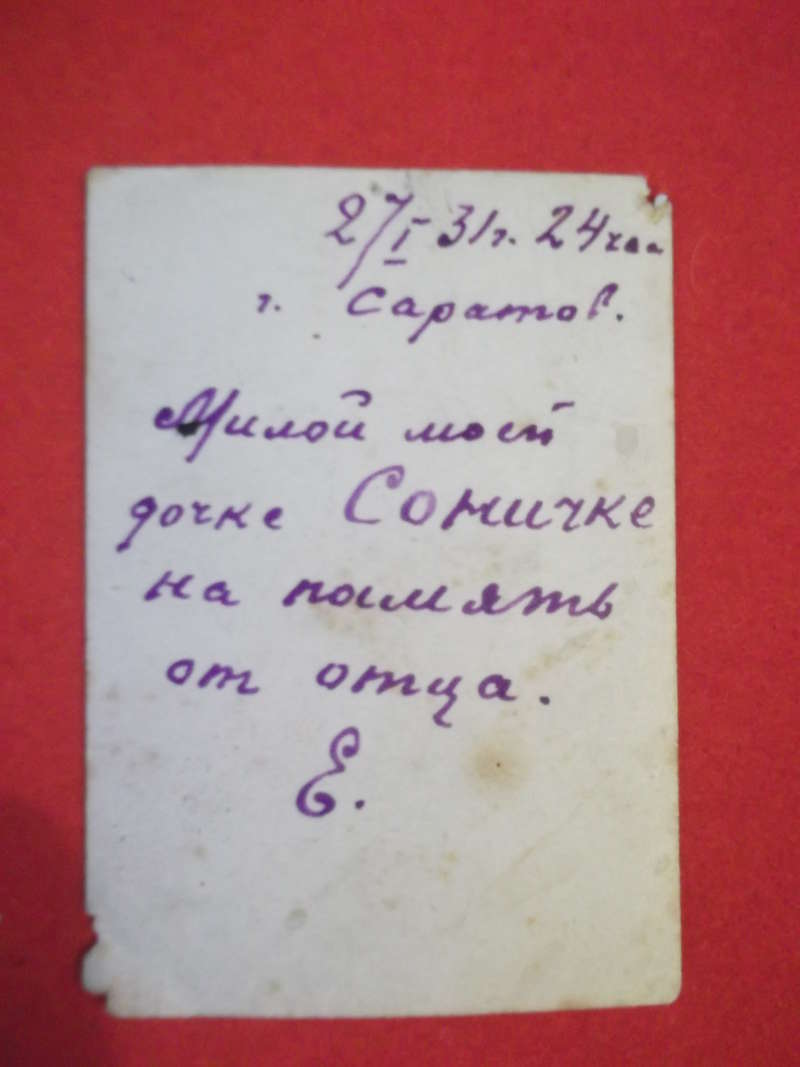 27/I 31г. 24 час
г. Саратов.
Милой моей
дочке Соничке
на память
от отца.
Е.